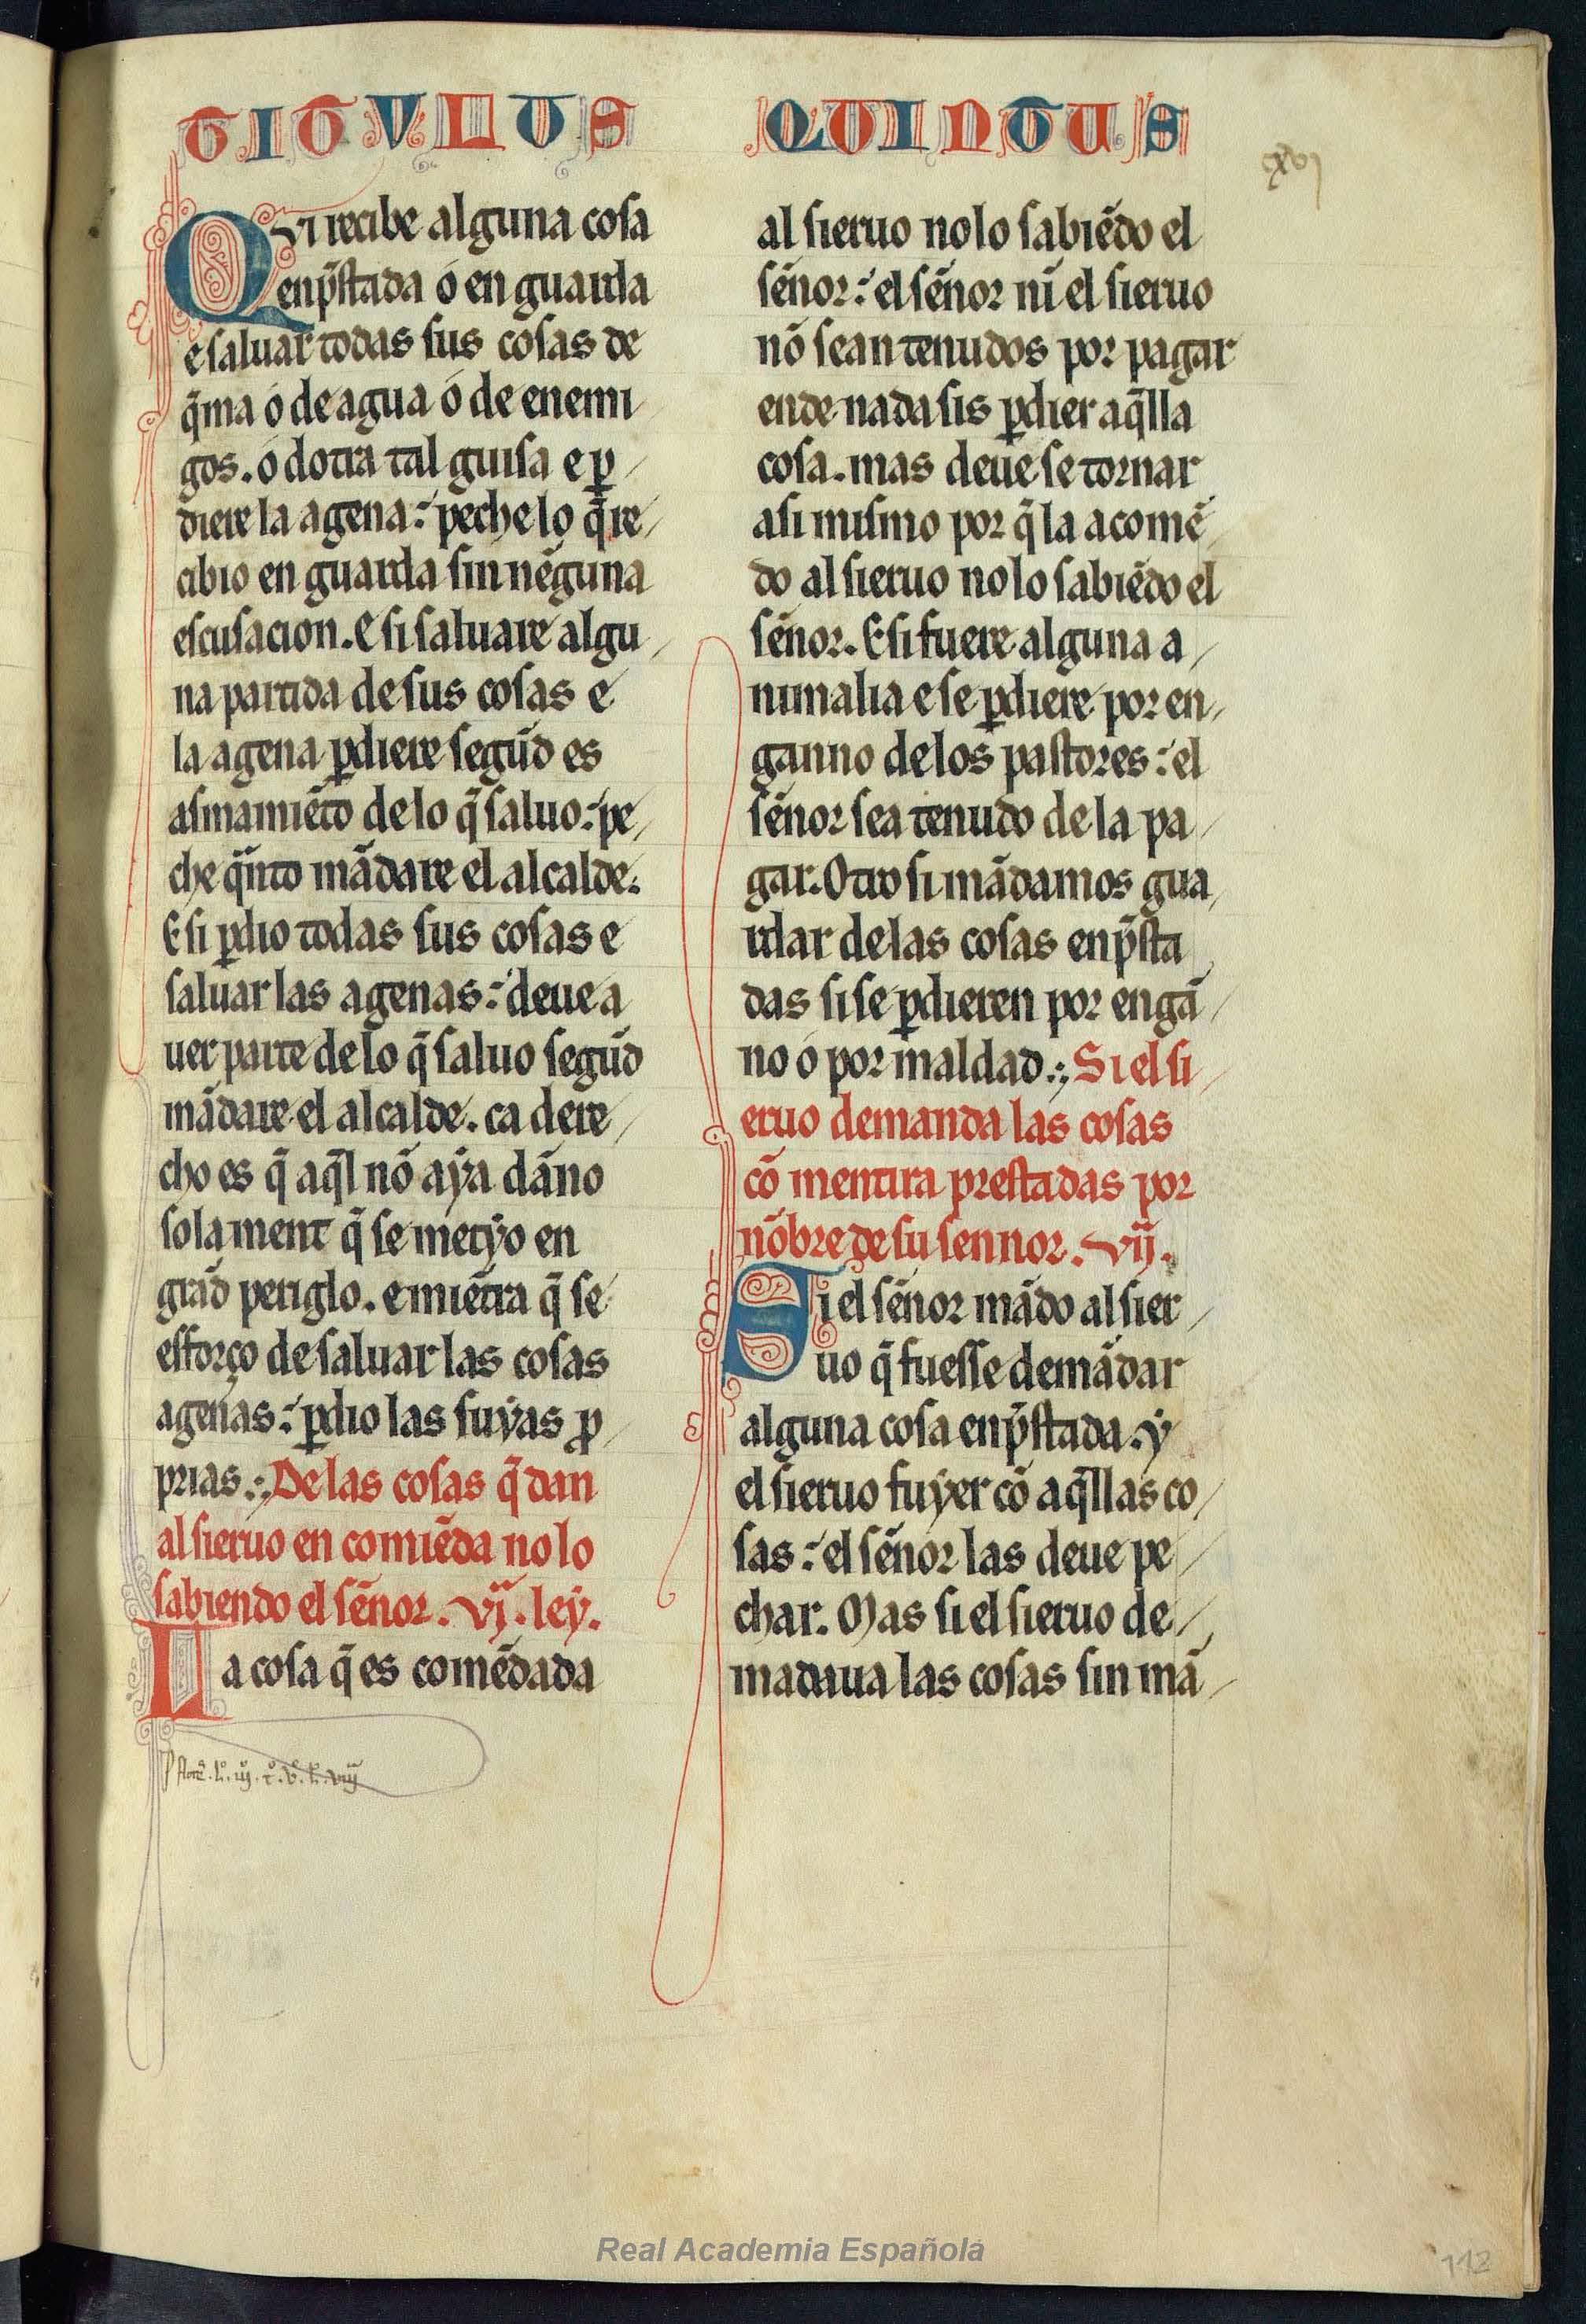 TITVLUS QUINTUS
cxvj
QVi recibe alguna cosa
enp̃stada o en guarda
e saluar todas sus cosas de
q̃ma o de agua o de enemi
gos. o dotra tal guisa e ꝑ
diere la agena: peche lo q̃ re
cibio en guarda sin nẽguna
escusacion. E si saluare algu
na partida de sus cosas e
la agena ꝑdiere segũd es
asmamiẽto de lo q̃ saluo: pe
che q̃nto mãdare el alcalde.
E si ꝑdio todas sus cosas e
saluar las agenas: deue a
uer parte de lo q̃ saluo segũd
mãdare el alcalde. ca dere
cho es q̃ aq̃l nõ aya dãno
sola ment q̃ se metyo en
grãd periglo. e miẽtra q̃ se
efforço de saluar las cosas
agenas: ꝑdio las suyas ꝓ
prias. De las cosas q̃ dan
al sieruo en comiẽda no lo
sabiendo el sẽnor. vj. ley.
La cosa q̃ es comẽdada
al sieruo no lo sabiẽdo el
sẽnor: el sẽnor nĩ el sieruo
nõ sean tenudos por pagar
ende nada sis ꝑdier aq̃lla
cosa. mas deue se tornar
asi mismo por q̃ la acomẽ
do al sieruo no lo sabiẽdo el
sẽnor. E si fuere alguna a
nimalia e se ꝑdiere por en
ganno de los pastores: el
sẽnor sea tenudo de la pa
gar. Otro si mãdamos gua
rdar de las cosas enp̃sta
das si se ꝑdieren por engã
no o por maldad. Si el si
eruo demanda las cosas
cõ mentira prestadas por
nõbre de su sennor. vij.
Si el sẽnor mãdo al sier
uo q̃ fuesse demãdar
alguna cosa enp̃stada. y
el sieruo fuyer cõ aq̃llas co
sas: el sẽnor las deue pe
char. Mas si el sieruo de
madaua las cosas sin mã
Real Academia Española
112